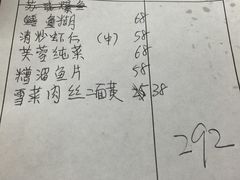 鳝鱼糊 68
清炒虾仁 (中) 58
芙蓉纯菜 68
糟溜鱼片 58
雪菜肉丝二面黄 38
292